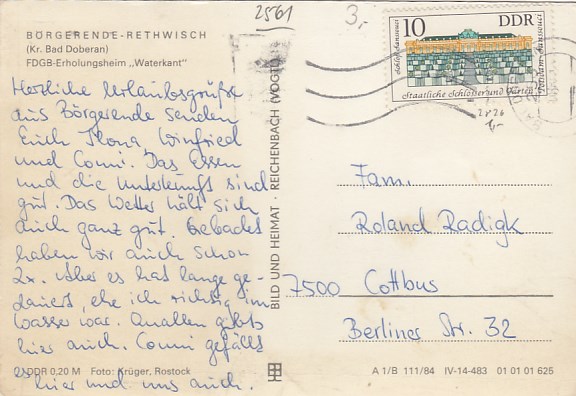 2561
3,-
BÖRGERENDE-RETHWISCH
(Kr. Bad Doberan)
FDGB-Erholungsheim „Waterkant"
Herzliche Urlaubsgrüße
aus Börgerende senden
Euch Ilona, Winfried
und Conni. Das Essen
und die Unterkunft sind
gut. Das Wetter hält sich
auch ganz gut. Gebadet
haben wir auch schon
2x. Aber es hat lange ge-
dauert, ehe ich richtig im
Wasser war. Quallen gibts
hier auch. Conni gefällts
es hier und uns auch.
DDR 0,20 M Foto: Krüger, Rostock
BILD UND HEIMAT · REICHENBACH (VOGTL)
10 DDR
Schloß Sanssouci
Potsdam-Sanssouci
Staatliche Schlösser und Gärten
2826
Fam.
Roland Radigk
7500 Cottbus
Berliner Str. 32
A 1/B 111/84 IV-14-483 01 01 01 625